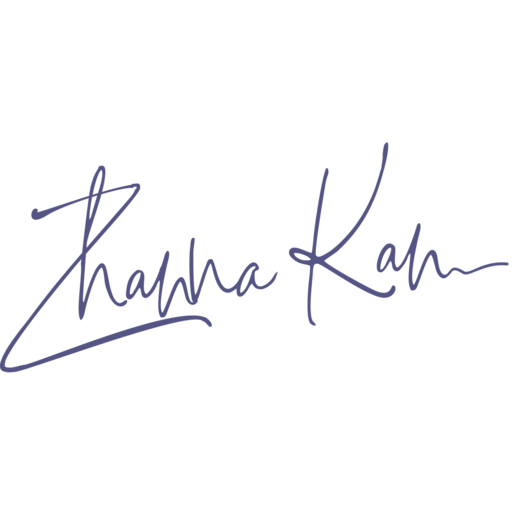 Zhanna Kan